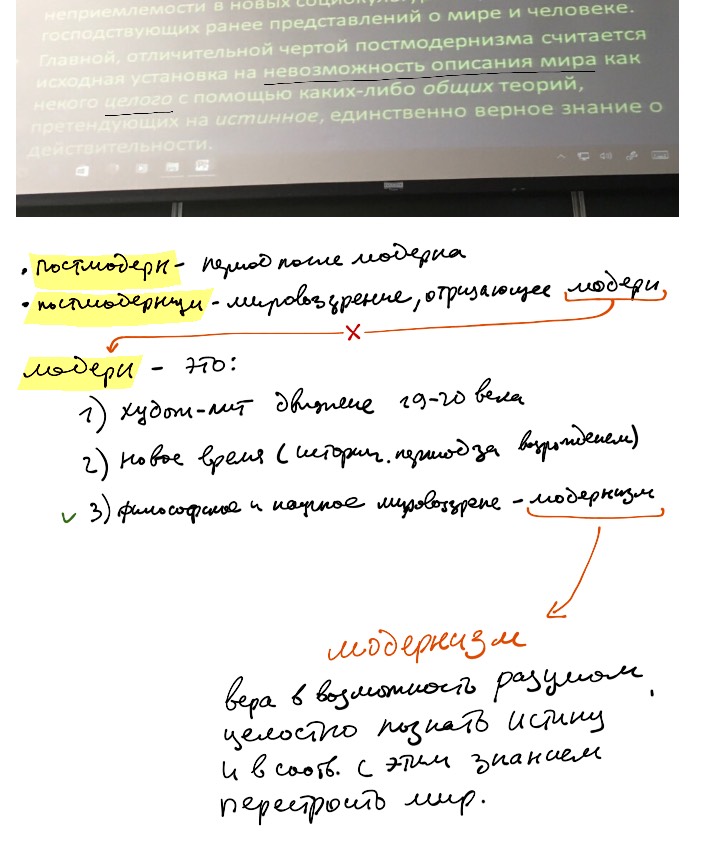 неприемлемости в новых социокульту
господствующих ранее представлений о мире и человеке.
Главной, отличительной чертой постмодернизма считается
исходная установка на невозможность описания мира как
некого целого с помощью каких-либо общих теорий,
претендующих на истинное, единственно верное знание о
действительности.
• постмодерн - период после модерна
• постмодернизм - мировоззрение, отрицающее модерн
X
модерн - это:
1) худож-лит движение 19-20 века
2) Новое время (историч. период за возрождением)
✓ 3) философское и научное мировоззрение - модернизм
модернизм
вера в возможность разумом,
целостно познать истину
и в соотв. с этим знанием
перестроить мир.